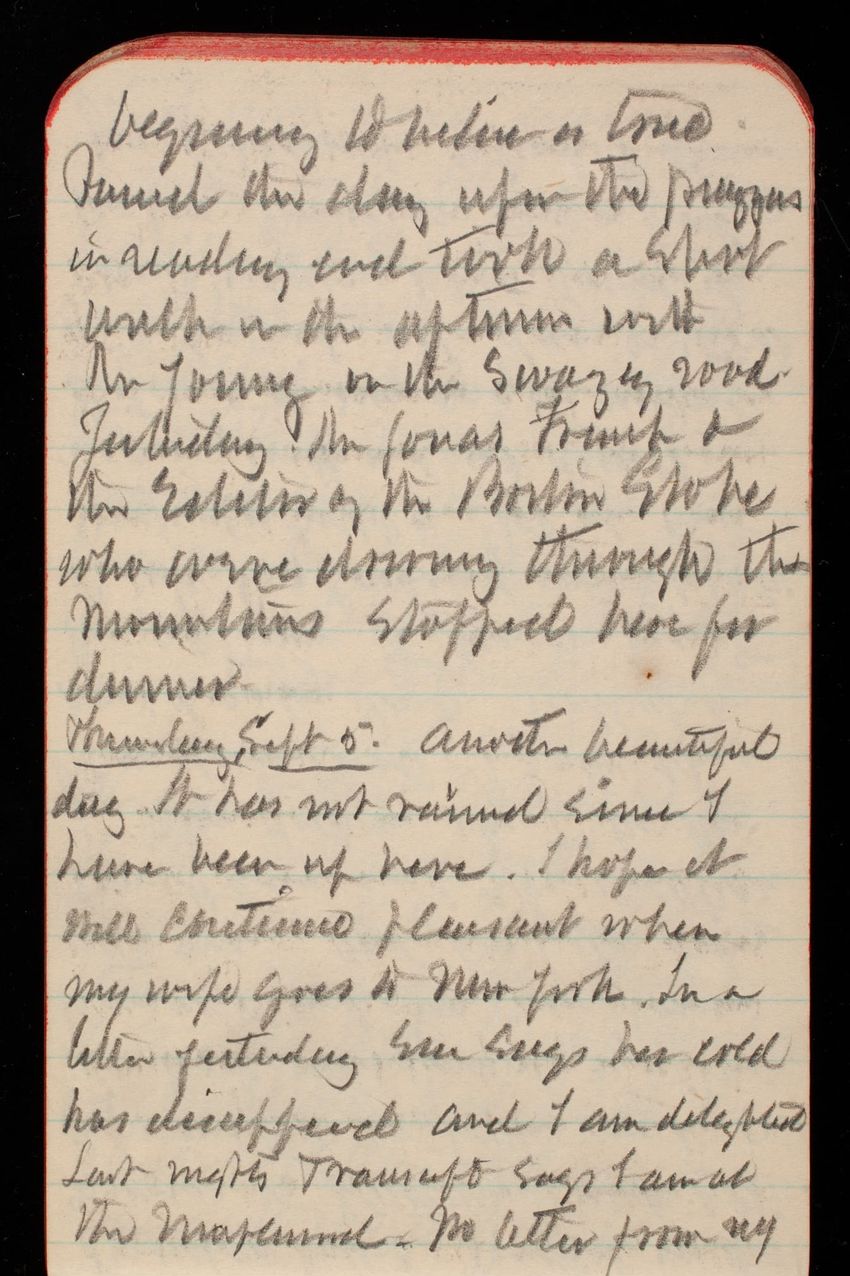 beginning to believe is true.
Passed the day upon the piazzas
in reading and took a short
walk in the afternoon with
Mr Young on the Swazey road.
Yesterday Mr Jonas French &
the Editor of the Boston Globe
who were driving through the
Mountains stopped here for
dinner.
Thursday, Sept 5. Another beautiful
day. It has not rained since I
have been up here. I hope it
will continue pleasant when
my wife goes to New York. In a
letter yesterday she says her cold
has disappeared and I am delighted
Last nights Transcript says I am at
the Maplewood. No letter from my